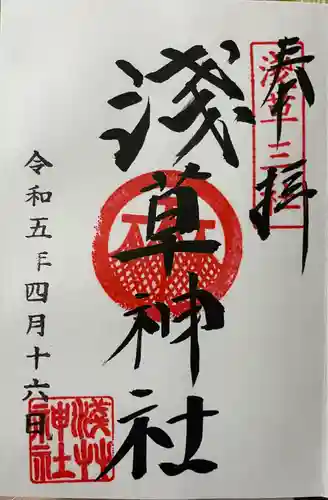 奉拝
浅草三社
淺草神社
令和五年四月十六日
淺草神社